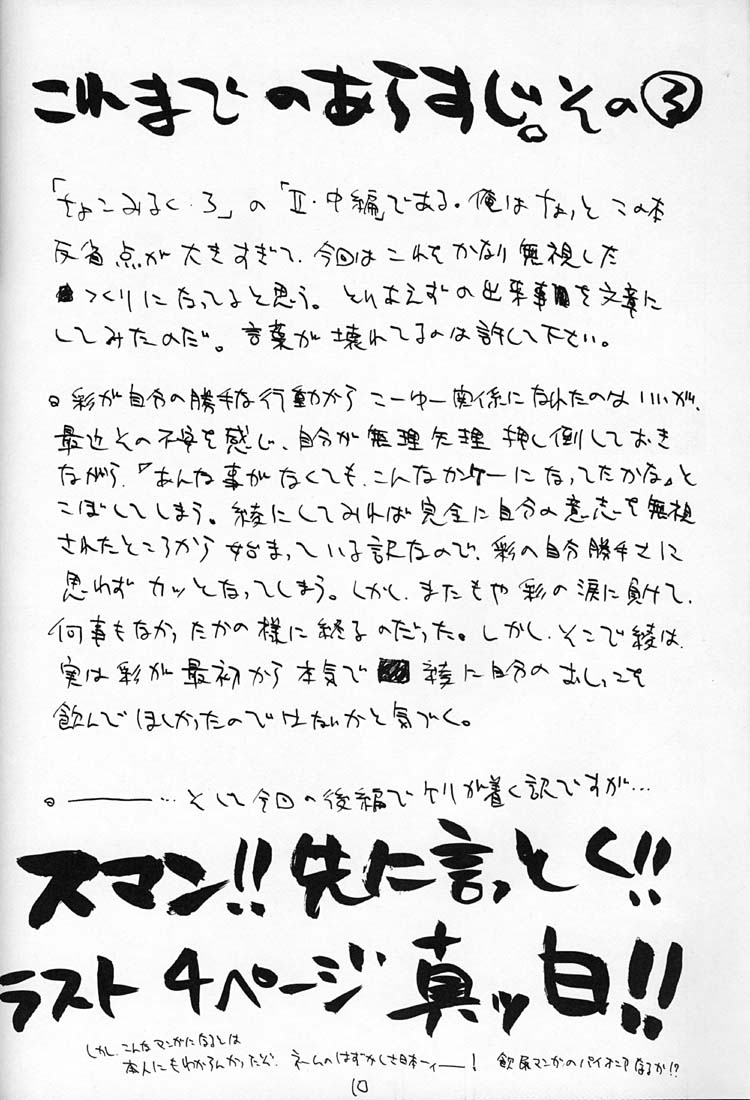 これまでのあらすじ。その③
「ちょこみるく・3」の「Ⅱ・中編」である。俺はちょっとこの本
反省点が大きすぎて、今回はこれをかなり無視した
つくりになってると思う。とりあえずの出来事を文章に
してみたのだ。言葉が壊れてるのは許して下さい。
◎彩が自分の勝手な行動からこーゆー関係になれたのはいいが、
最近その不安を感じ、自分が無理矢理押し倒しておき
ながら、『あんな事がなくても、こんなカンケーになってたかな』と
こぼしてしまう。綾にしてみれば完全に自分の意志を無視
されたところから始まっている訳なので、彩の自分勝手さに
思わずカッとなってしまう。しかし、またもや彩の涙に負けて、
何事もなかったかの様に終るのだった。しかし、そこで綾は、
実は彩が最初から本気で綾に自分のおしっこを
飲んでほしかったのではないかと気づく。
◎―――…そして今回の後編でケリが着く訳ですが…
スマン!!先に言っとく!!
ラスト4ページ真ッ白!!
しかし、こんなマンガになるとは
本人にもわからんかったぞ。ネームのはずかしさ日本一ィー! 飲尿マンガのパイオニアなるか!?
10